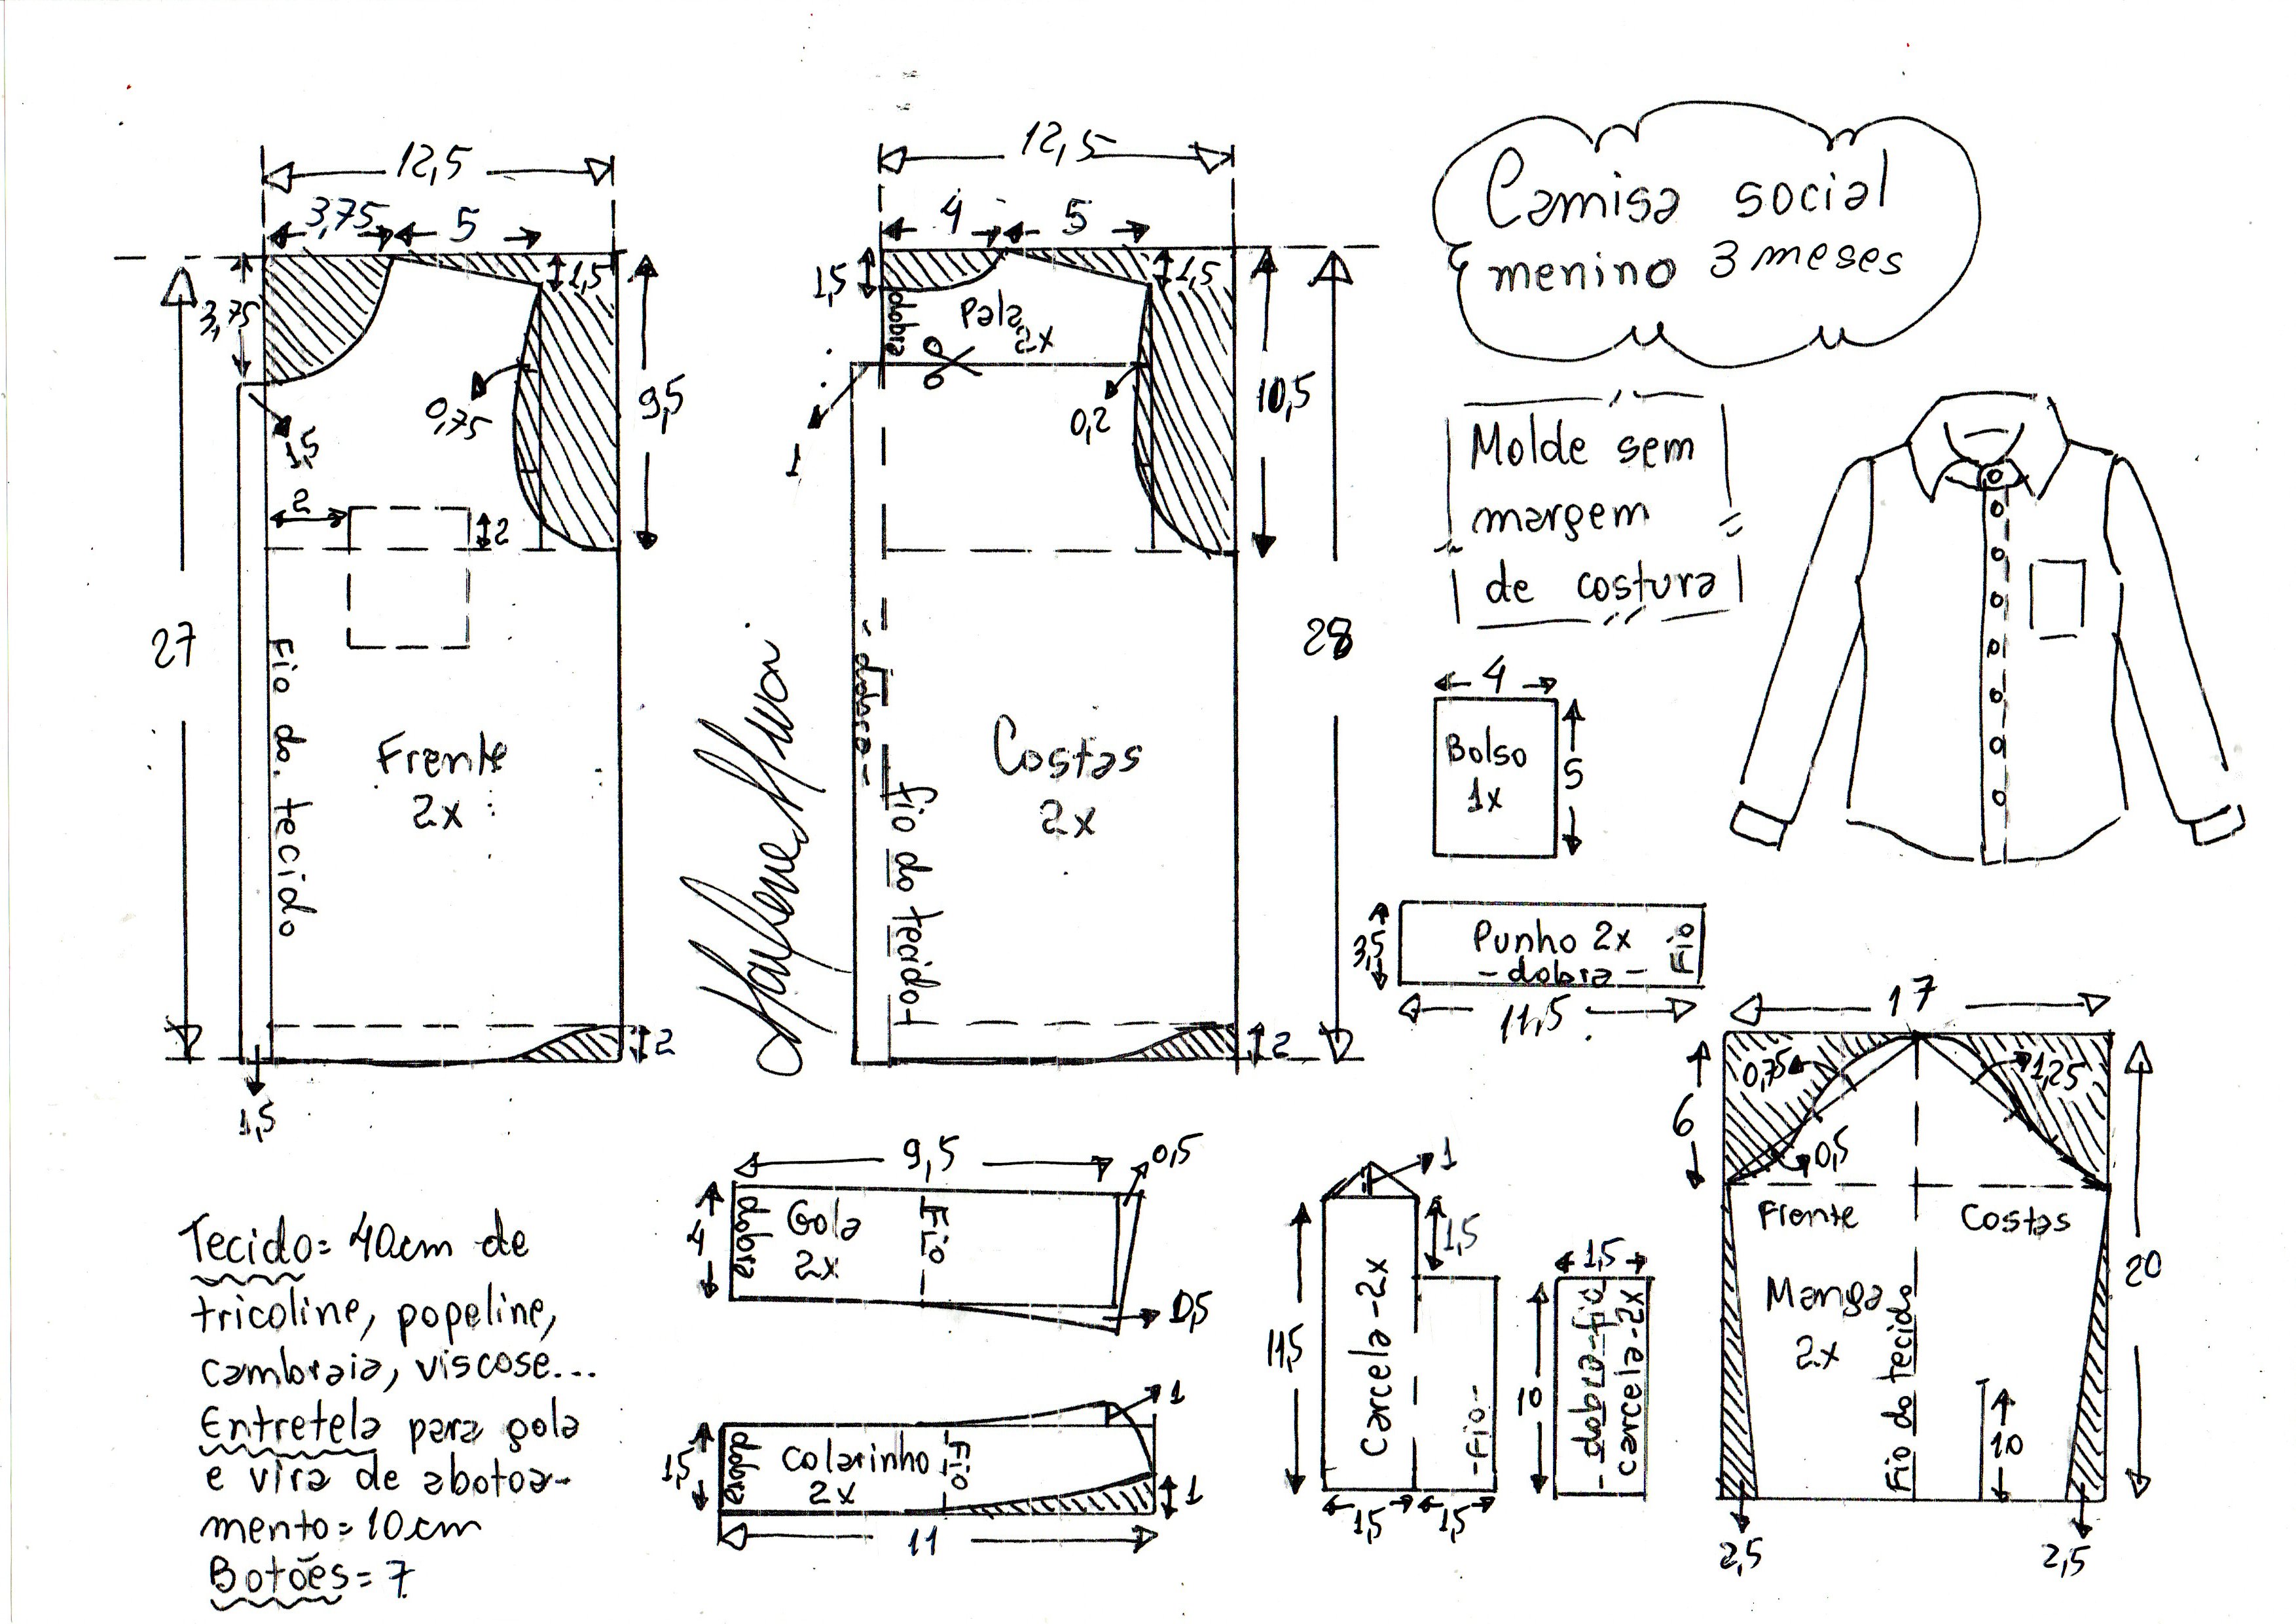 Camisa social
menino 3 meses
Molde sem
margem
de costura
12,5
3,75
5
1,5
3,75
1,5
0,75
9,5
2
2
27
Fio do tecido
Frente
2x
2
1,5
12,5
4
5
1,5
1,5
dobra
Pala
2x
1
0,2
10,5
28
-dobra-
fio do tecido
Costas
2x
2
4
Bolso
1x
5
3,5
Punho 2x
-dobra-
Fio
11,5
17
0,75
1,25
6
0,5
Frente
Costas
Manga
2x
Fio do tecido
10
20
2,5
2,5
9,5
0,5
4
dobra
Gola
2x
Fio
0,5
1
1,5
dobra
Colarinho
2x
Fio
1
11
1
1,5
11,5
Carcela-2x
-Fio-
1,5
1,5
1,5
10
-dobra-fio
carcela-2x
Tecido= 40cm de
tricoline, popeline,
cambraia, viscose...
Entretela para gola
e vira de abotoa-
mento=10cm
Botões=7